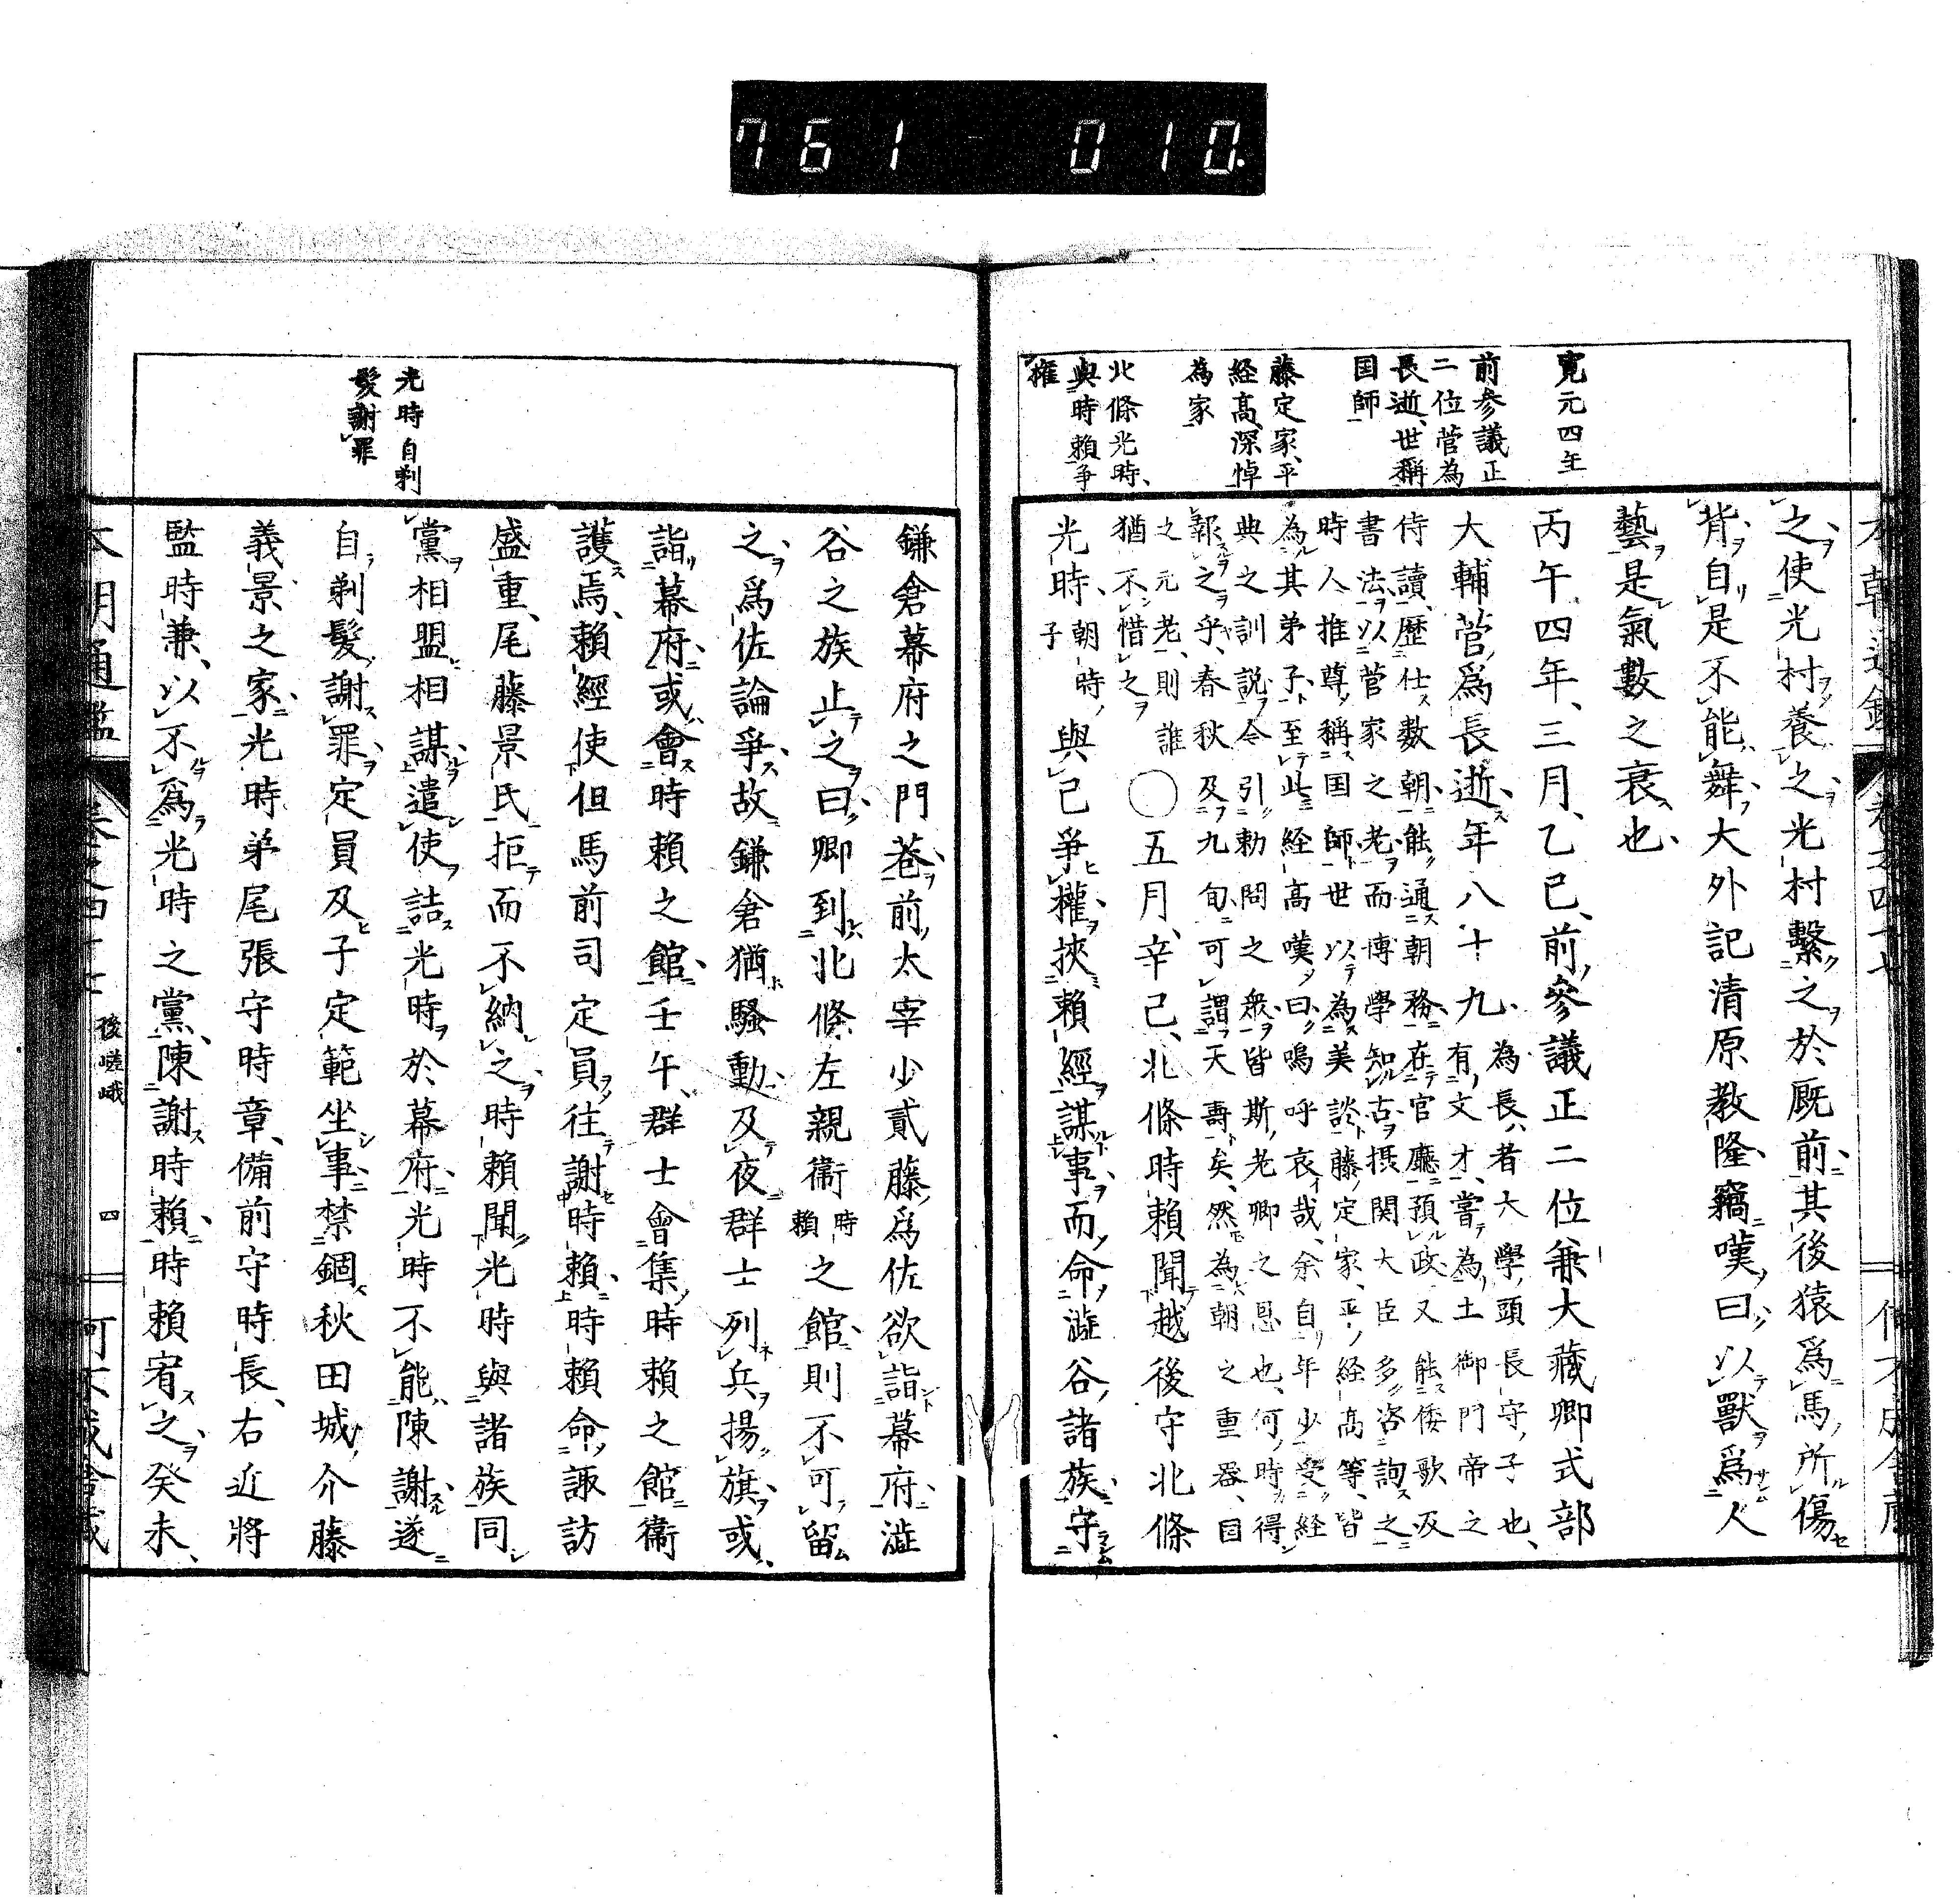 761 010
寛元四年
前参議正
二位菅為
長逝、世稱
国師
藤定家、平
経高、深悼
為家
北條光時、
與時賴争
権
之使光村養之光村繫之於厩前其後猿爲馬所傷
背自是不能舞大外記清原教隆竊嘆曰以獸爲人
藝是氣數之衰也
丙午四年、三月、乙巳、前參議正二位兼大藏卿式部
大輔菅爲長逝年八十九
為長者大學頭長守子也、
有文才、嘗為土御門帝之
侍讀、歷仕数朝能通朝務在官廳預政又能倭歌及
書法以菅家之老而博學知古摂関大臣多咨詢之
時人推尊稱国師世以為美談藤定家、平経高等皆
為其弟子至此経高嘆曰嗚呼哀哉、余自年少受経
典之訓説令引勅問之衆皆斯老卿之恩也、何時得
報之乎、春秋及九旬可謂天壽矣、然為朝之重器、国
之元老、則誰
猶不惜之
○五月、辛巳、北條時賴聞越後守北條
光時
朝時
子
與己爭權挾賴經謀事而命澁谷諸族守
鎌倉幕府之門巷前太宰少貳藤爲佐欲詣幕府澁
谷之族止之曰卿到北條左親衞
時
賴
之館則不可留
之爲佐論爭故鎌倉猶騷動及夜群士列兵揚旗或
詣幕府或會時賴之館壬午群士會集時賴之館衞
護焉賴經使但馬前司定員往謝時賴時賴命諏訪
盛重、尾藤景氏拒而不納之時賴聞光時與諸族同
黨相盟相謀遣使詰光時於幕府光時不能陳謝遂
自剃髮謝罪定員及子定範坐事禁錮秋田城介藤
義景之家光時弟尾張守時章、備前守時長、右近將
監時兼、以不爲光時之黨陳謝時賴時賴宥之癸未、
光時自剃
髮謝罪
本朝通鑑
後嵯峨
四